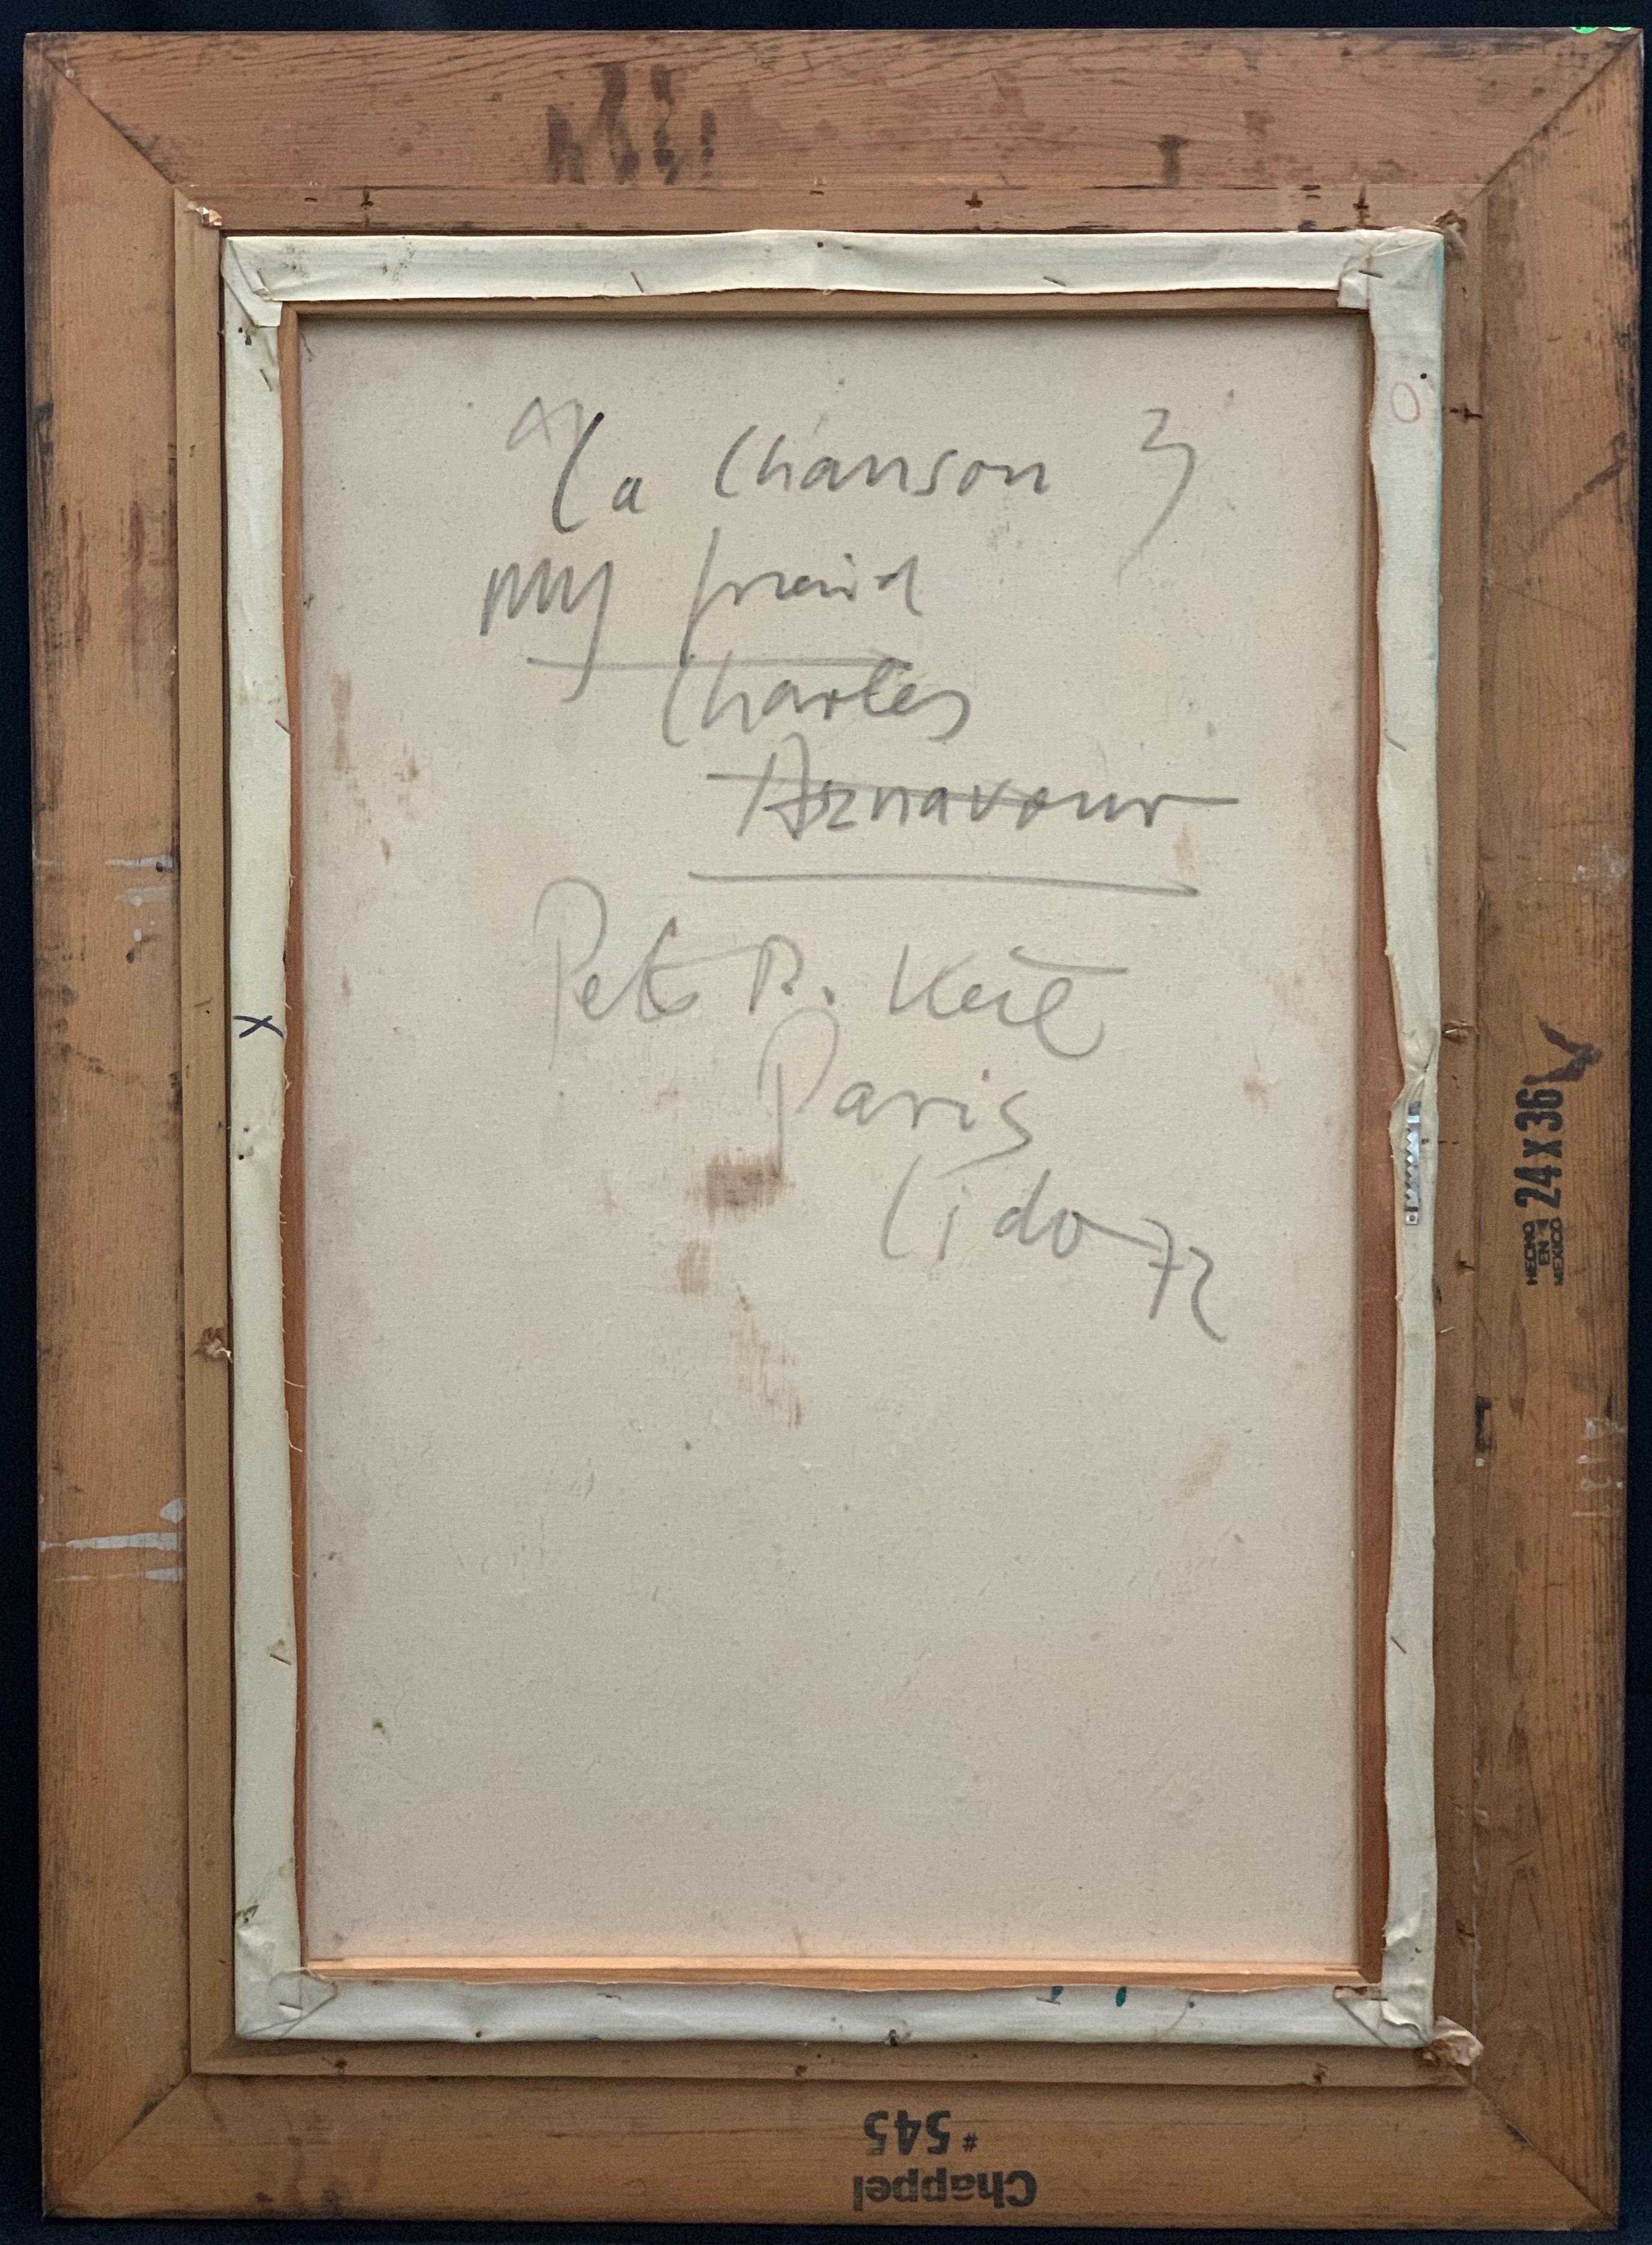 "La Chanson"
my freind
Charles
Aznavour
Peter R. Keil
Paris
Lido 72
HECHO
EN
MEXICO
24 x 36
Chappel
# 545